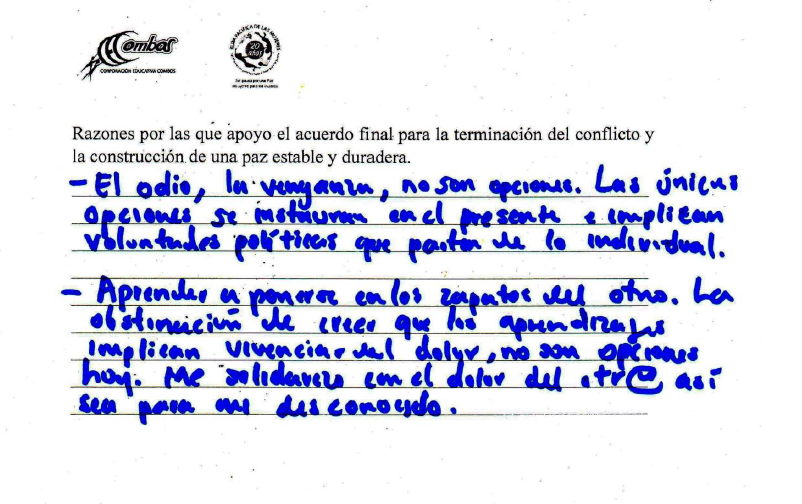 Combos
CORPORACIÓN EDUCATIVA COMBOS
RUTA PACÍFICA DE LAS MUJERES
20 años
Razones por las que apoyo el acuerdo final para la terminación del conflicto y
la construcción de una paz estable y duradera.
- El odio, la venganza, no son opciones. Las únicas
opciones se instauran en el presente e implican
voluntades políticas que parten de lo individual.
- Aprender a ponerse en los zapatos del otro. La
obstinación de creer que los aprendizajes
implican vivenciar el dolor, no son opciones
hoy. Me solidarizo con el dolor del otr@ así
sea para mi desconocido.